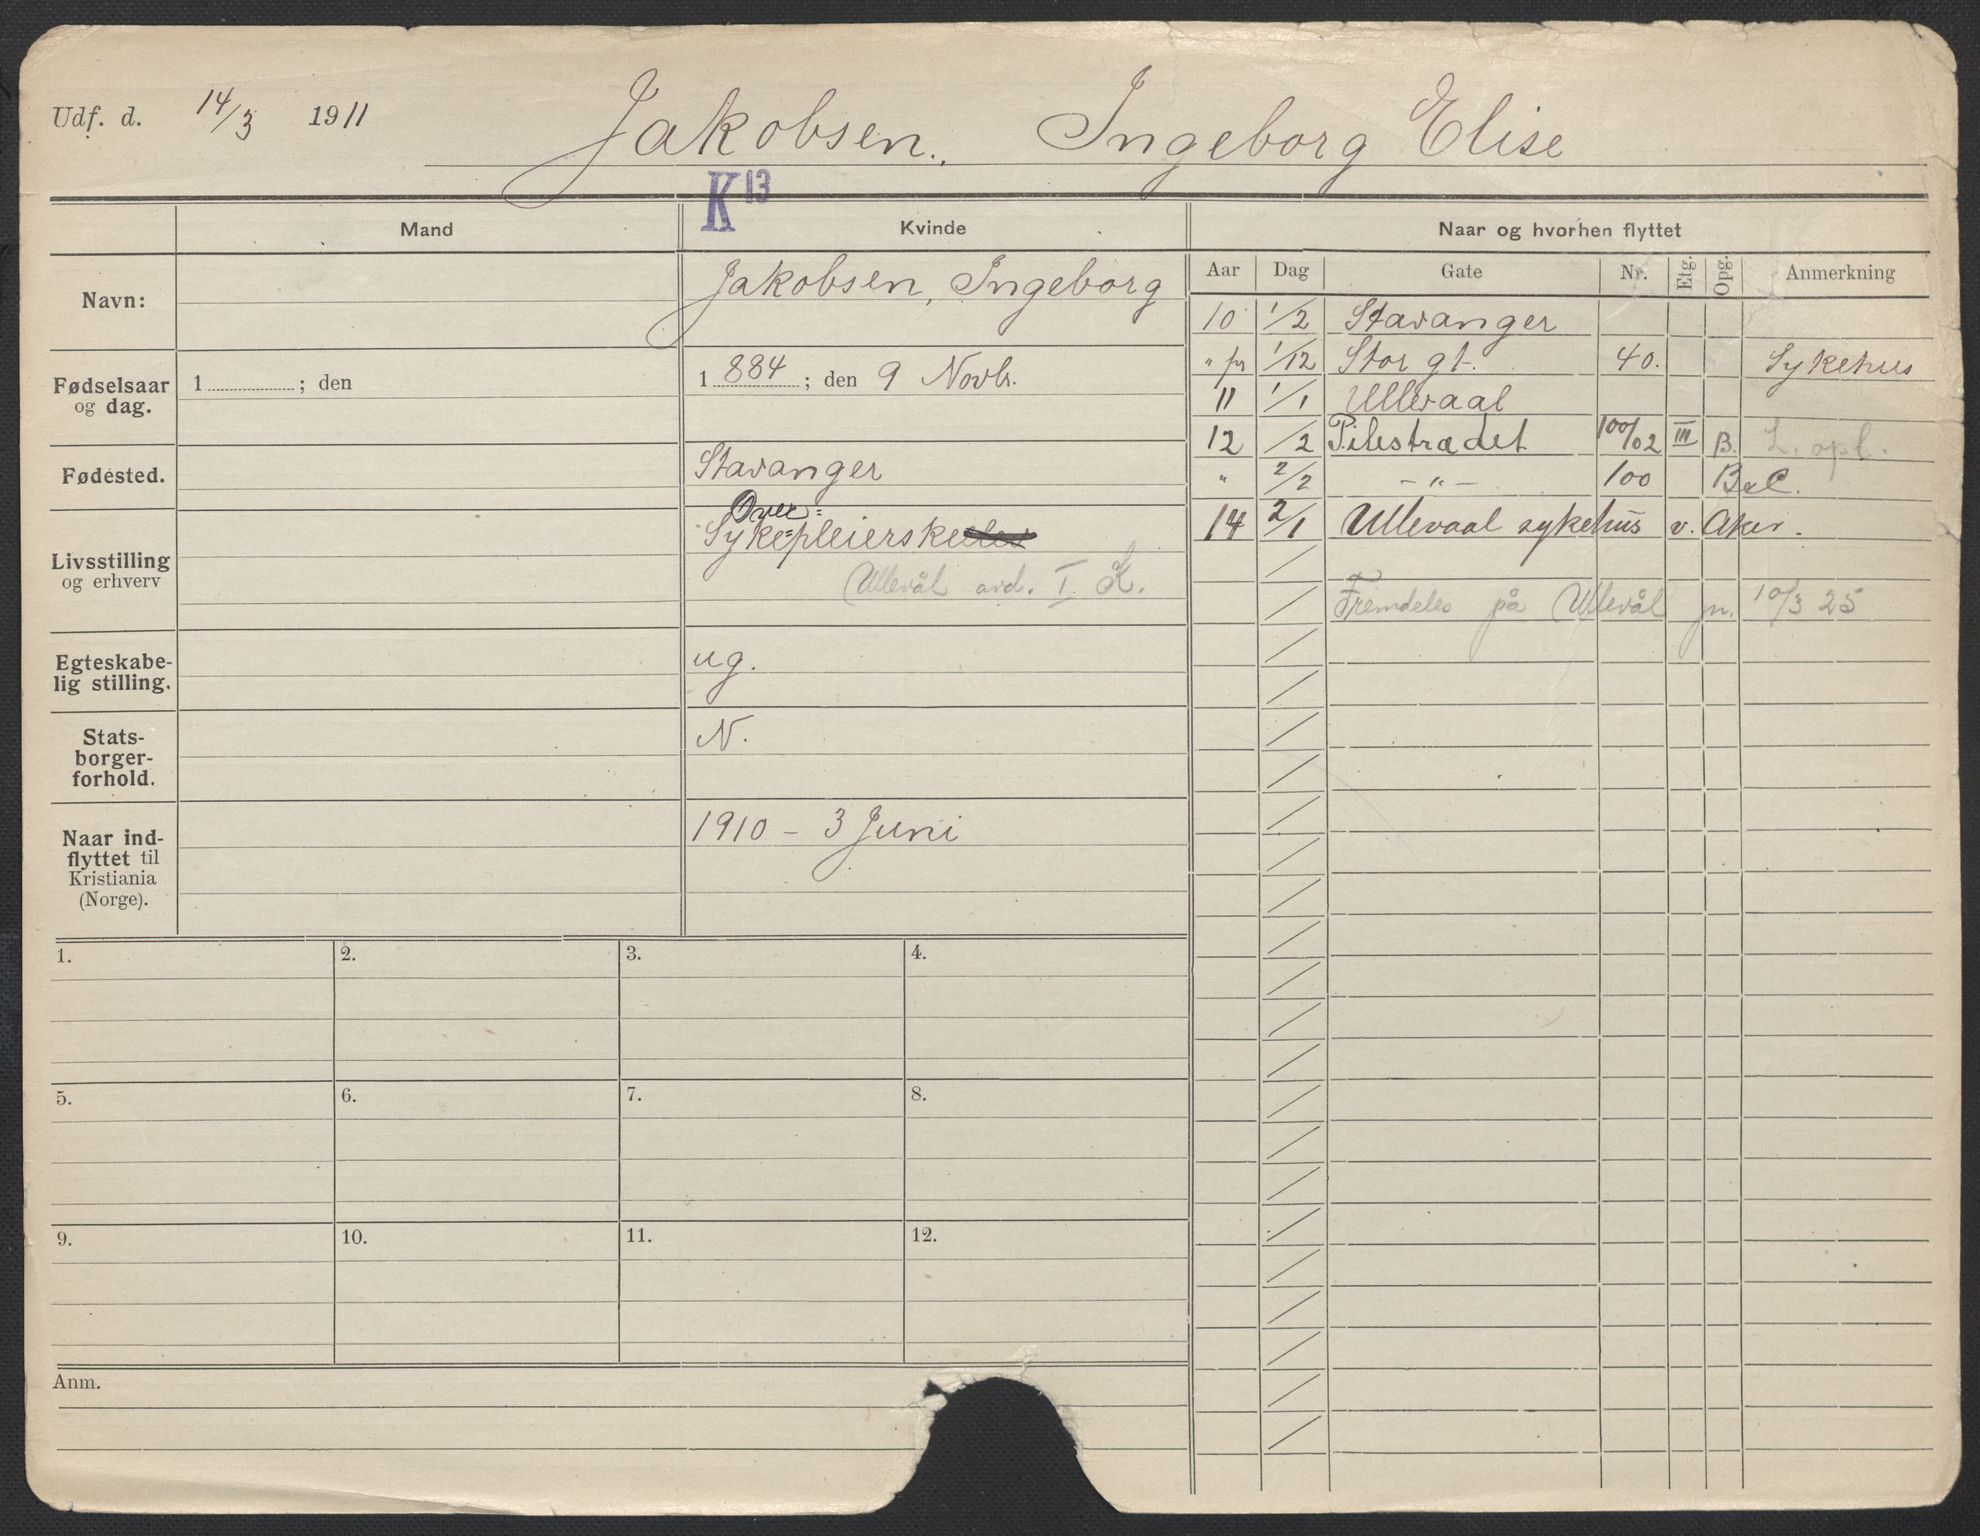 Udf. d. 14/3 1911 Jakobsen, Ingeborg Elise
K 13
Mand Kvinde Naar og hvorhen flyttet
Aar Dag Gate Nr. Etg. Opg. Anmerkning
Navn: Jakobsen, Ingeborg
10 1/2 Stavanger
" fr 1/12 Stor gt. 40. Sykehus
Fødselsaar og dag. 1 ; den 1 884 ; den 9 Novbr.
11 1/1 Ullevaal
12 /2 Pilestrædet 100/02 III B. L. opl.
Fødested. Stavanger
" 2/2 – " – 100 B&C.
Over=
14 2/1 Ullevaal sykehus v. Aker.
Livsstilling og erhverv Syke=pleierske
Ullevål avd. I. K.
Fremdeles på Ullevål 10/3 25
Egteskabe-
lig stilling. ug.
Stats-
borger-
forhold. N.
Naar ind-
flyttet til
Kristiania
(Norge). 1910 – 3 Juni
1. 2. 3. 4.
5. 6. 7. 8.
9. 10. 11. 12.
Anm.